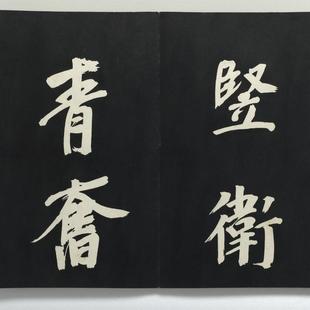 竪衛
青奮